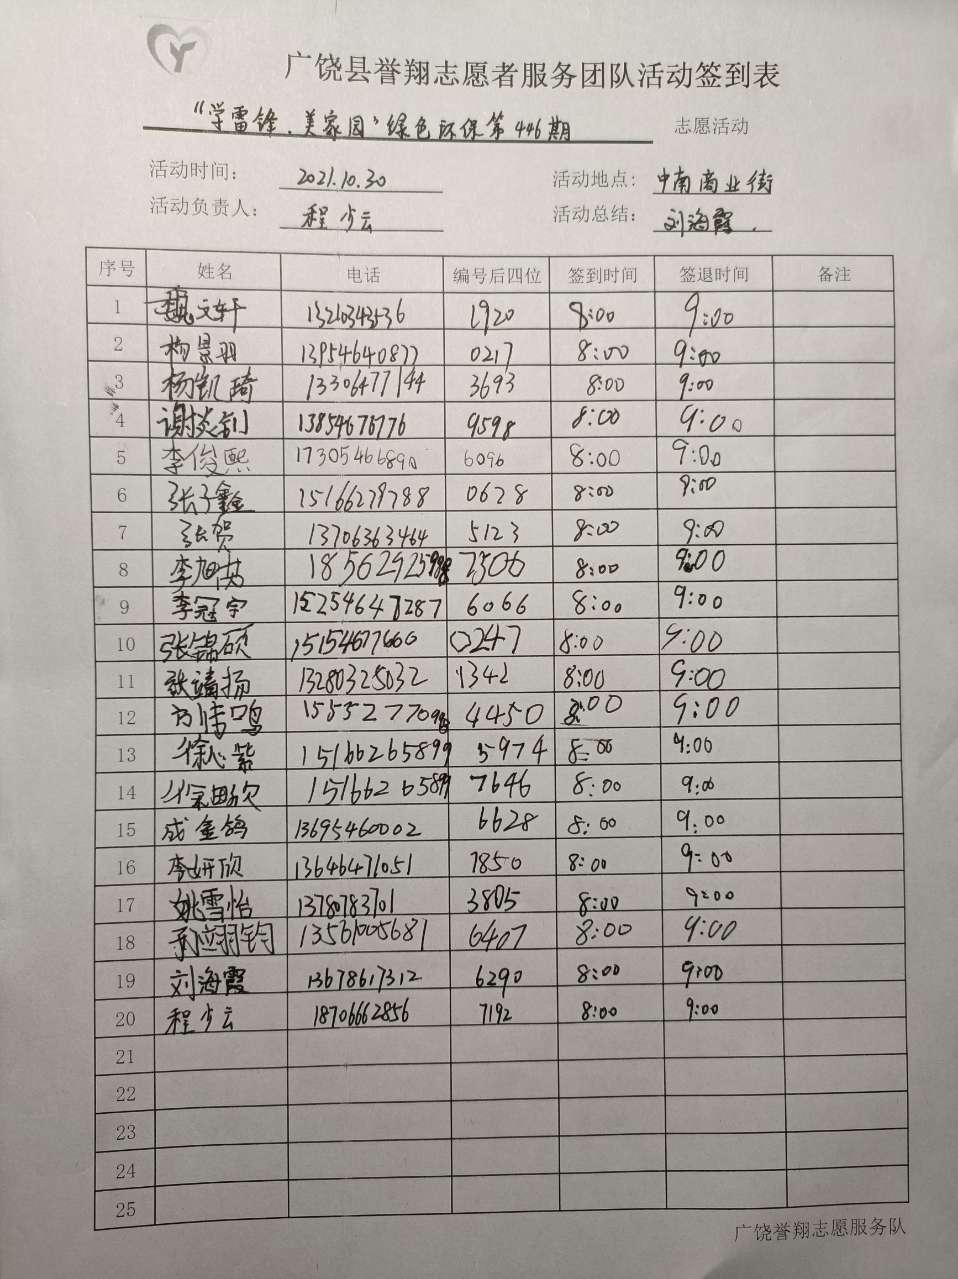 广饶县誉翔志愿者服务团队活动签到表
“学雷锋.美家园”绿色环保第446期 志愿活动
活动时间: 2021.10.30 活动地点: 中南商业街
活动负责人: 程少云 活动总结: 刘海霞.
序号 姓名 电话 编号后四位 签到时间 签退时间 备注
1 魏文轩 1920 8:00 9:00
2 杨景羽 13954640877 0217 8:00 9:00
3 杨凯琦 13306477144 3693 8:00 9:00
4 9598 8:00 9:00
5 李俊熙 6096 8:00 9:00
6 张子鑫 15166279788 0628 8:00 9:00
7 张贺 13706363464 5123 8:00 9:00
8 7306 8:00 9:00
9 李冠宇 15254647287 6066 8:00 9:00
10 张锦硕 15154677660 0247 8:00 9:00
11 张靖扬 13280325032 1342 8:00 9:00
12 4450 8:00 9:00
13 徐心紫 15166265899 5974 8:00 9:00
14 15166265899 7646 8:00 9:00
15 成金鸽 13695460002 6628 8:00 9:00
16 李妍欣 13646471051 7850 8:00 9:00
17 姚雪怡 13780783701 3805 8:00 9:00
18 13561005681 6407 8:00 9:00
19 刘海霞 13678617312 6290 8:00 9:00
20 程少云 18706662856 7192 8:00 9:00
21
22
23
24
25
广饶誉翔志愿服务队